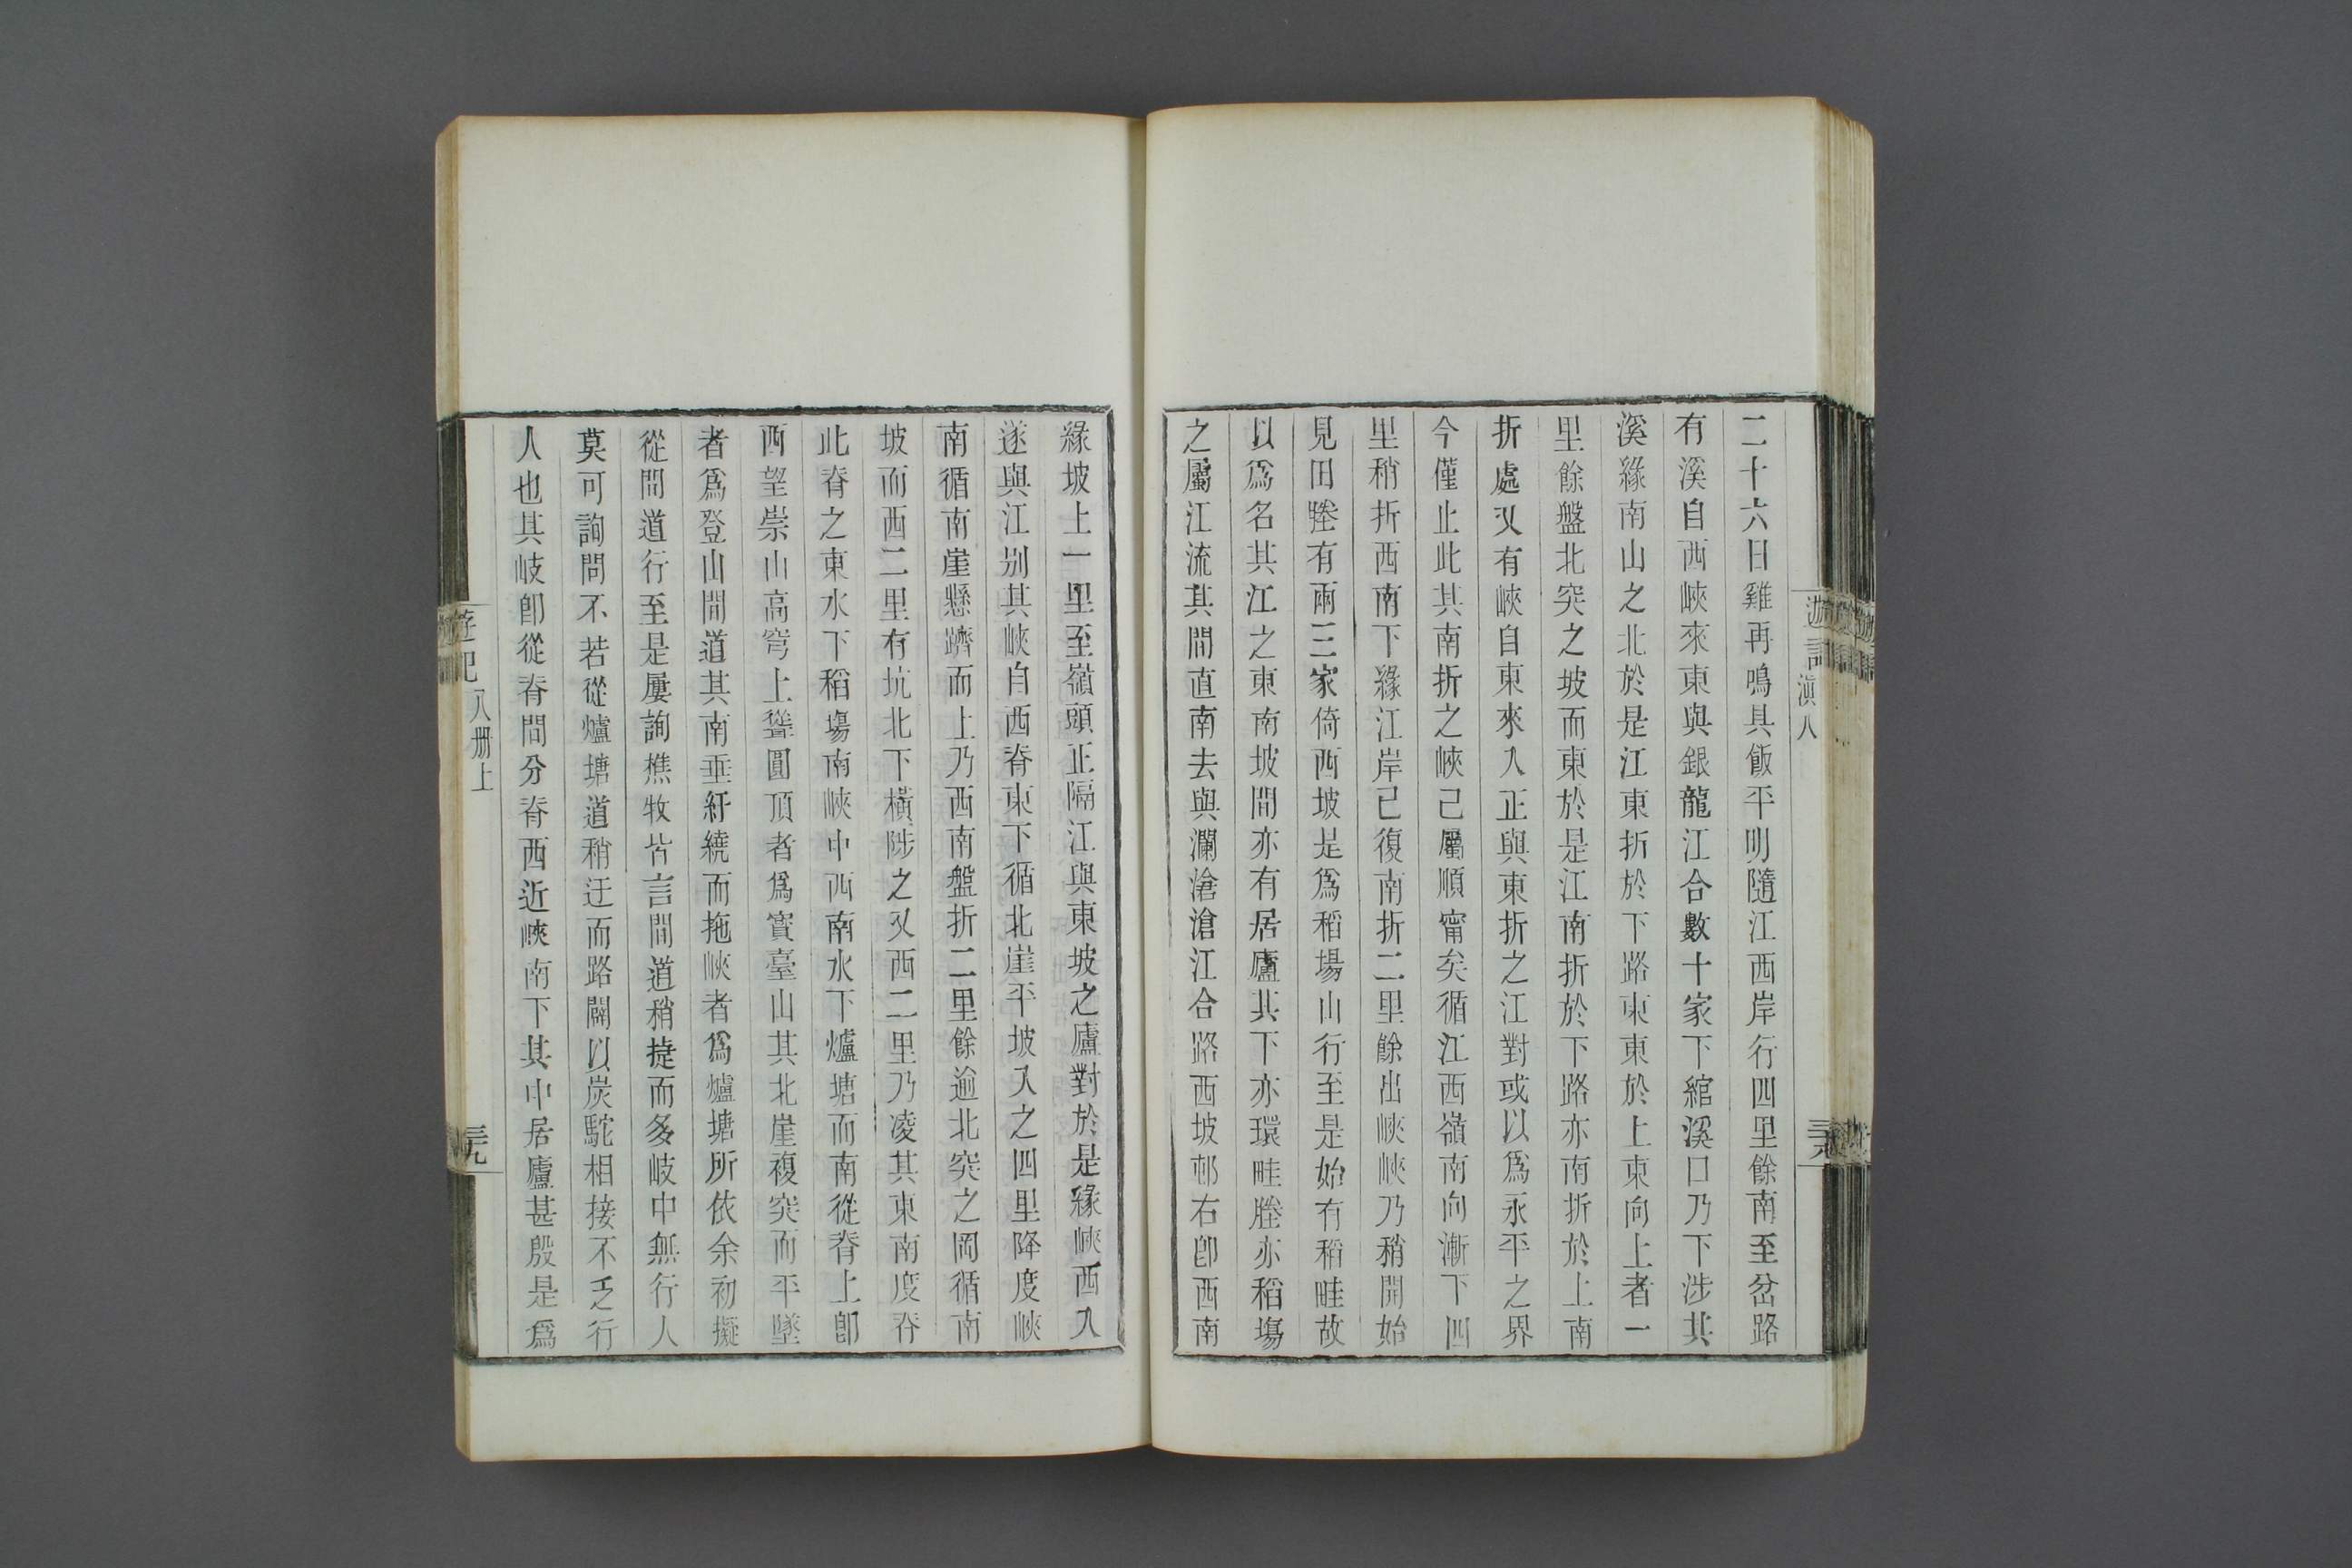 遊記
滇八
三八
二十六日雞再鳴具飯平明隨江西岸行四里餘南至岔路
有溪自西峽來東與銀龍江合數十家下綰溪口乃下涉其
溪緣南山之北於是江東折於下路東東於上東向上者一
里餘盤北突之坡而東於是江南折於下路亦南折於上南
折處又有峽自東來入正與東折之江對或以爲永平之界
今僅止此其南折之峽已屬順甯矣循江西嶺南向漸下四
里稍折西南下緣江岸已復南折二里餘出峽峽乃稍開始
見田塍有兩三家倚西坡是爲稻場山行至是始有稻畦故
以爲名其江之東南坡間亦有居廬其下亦環畦塍亦稻塲
之屬江流其間直南去與瀾滄滄江合路西坡邨右卽西南
緣坡上一里至嶺頭正隔江與東坡之廬對於是緣峽西入
遂與江别其峽自西脊東下循北崖平坡入之四里降度峽
南循南崖懸躋而上乃西南盤折二里餘逾北突之岡循南
坡而西二里有坑北下橫陟之又西二里乃凌其東南度脊
此脊之東水下稻塲南峽中西南水下爐塘而南從脊上卽
西望崇山高穹上聳圓頂者爲寶臺山其北崖複突而平墜
者爲登山間道其南垂紆繞而拖峽者爲爐塘所依余初擬
從間道行至是屢詢樵牧皆言間道稍捷而多岐中無行人
莫可詢問不若從爐塘道稍迂而路闢以炭駝相接不乏行
人也其岐卽從脊間分脊西近峽南下其中居廬甚殷是爲
遊記
八册上
三九